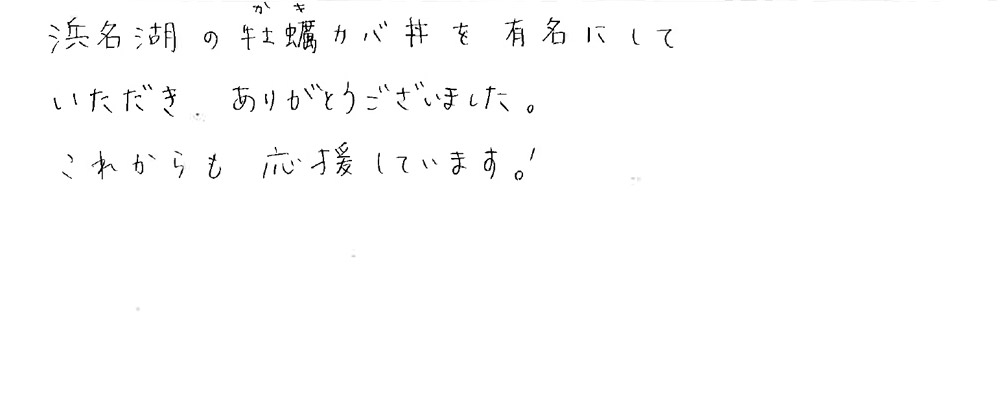 浜名湖の牡蠣カバ丼を有名にして
いただき、ありがとうございました。
これからも応援しています。!